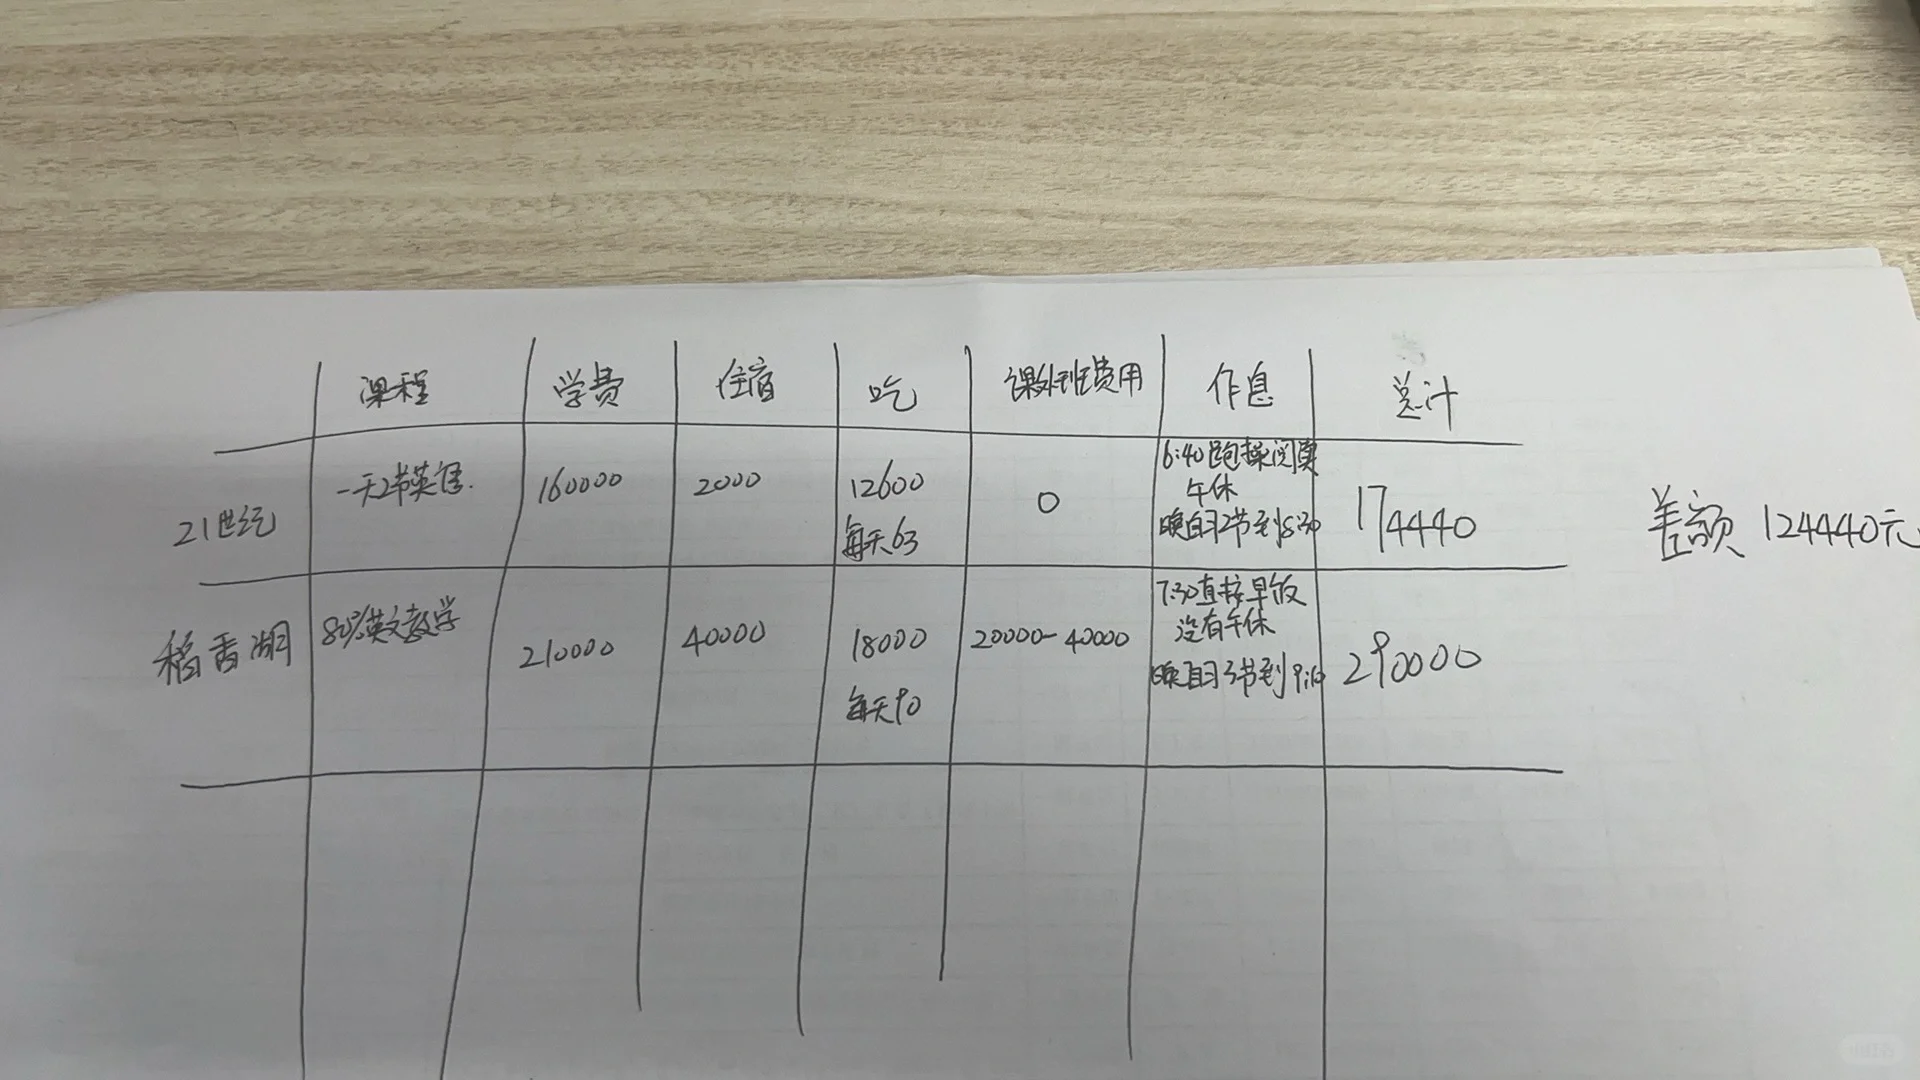 课程 学费 住宿 吃 课外班费用 作息 总计
21世纪 一天2节英语. 160000 2000 12600 每天63 0 6:40跑操阅真 午休 晚自习2节到8:30 174440
差额 124440元
稻香湖 80%英文教学 210000 40000 18000 每天90 20000-40000 7:30直接早饭 没有午休 晚自习3节到9:10 290000